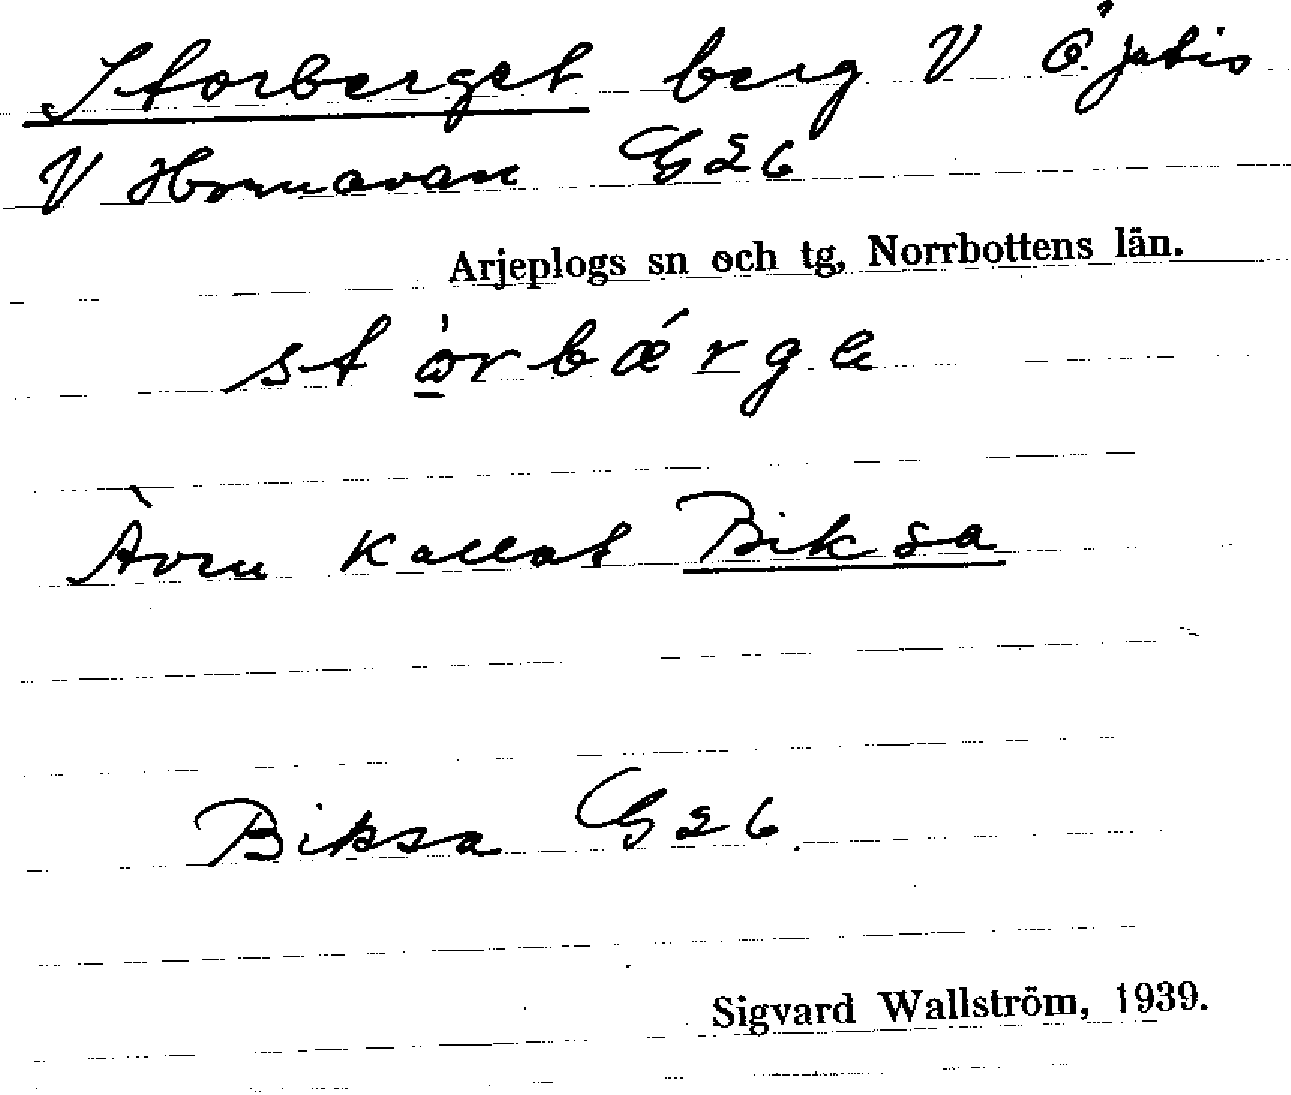 Storberget berg V Ö. Jutis
V Hornavan G26
Arjeplogs sn och tg, Norrbottens län.
st o̲̒rbǽrge
Även kallat Biksa
Biksa G26.
Sigvard Wallström, 1939.